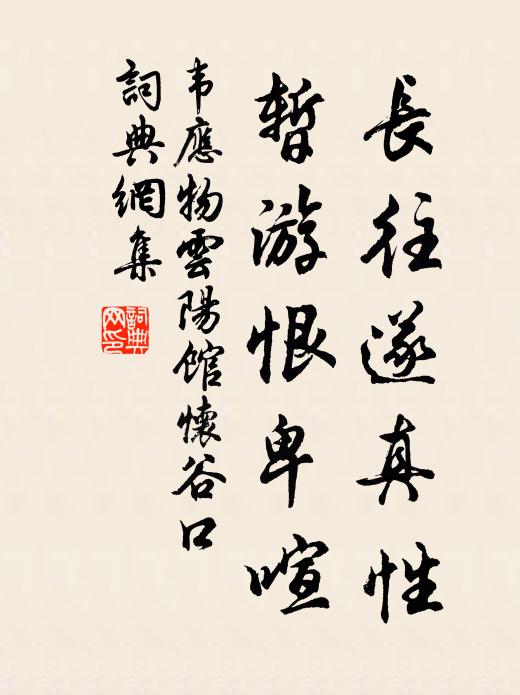 長往遂真性
暫游恨卑喧
韦應物雲陽館懷谷口
詞典網集
詞典网印